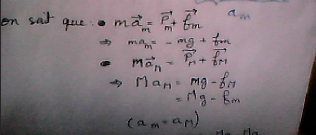 on sait que : • m a⃗m = P⃗m + f⃗m
am
⇒ m am = - mg + fm
• m a⃗M = P⃗M + f⃗M
⇒ M aM = Mg - fM
= Mg - fm
(am = aM)